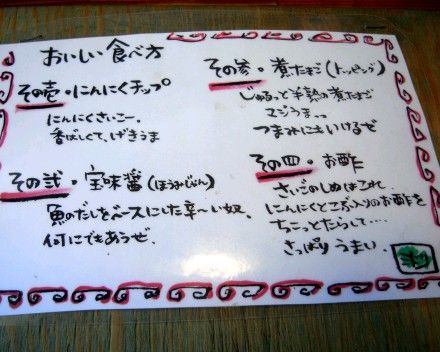 おいしい食べ方
その壱・にんにくチップ
にんにくさいこー。
香ばしくて、げきうま
その弐・宝味醤(ほうみじゃん)
魚のだしをベースにした辛〜い奴。
何にでもあうぜ.
その参・煮たまご(トッピング)
じゅるっと半熟の煮たまご
マジうまっっ
つまみにもいけるぜ
その四・お酢
さいごのしめはこれ.
にんにくとこぶ入りのお酢を
ちこっとたらして....
さっぱりうまい.